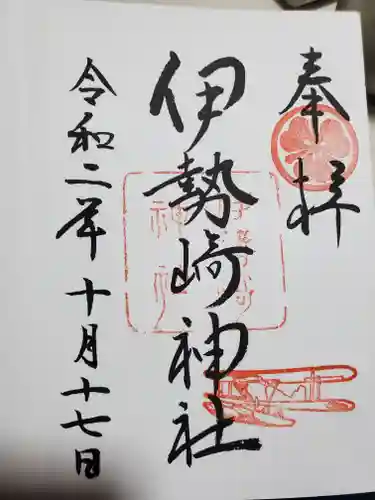 奉拝
伊勢崎神社
令和二年十月十七日